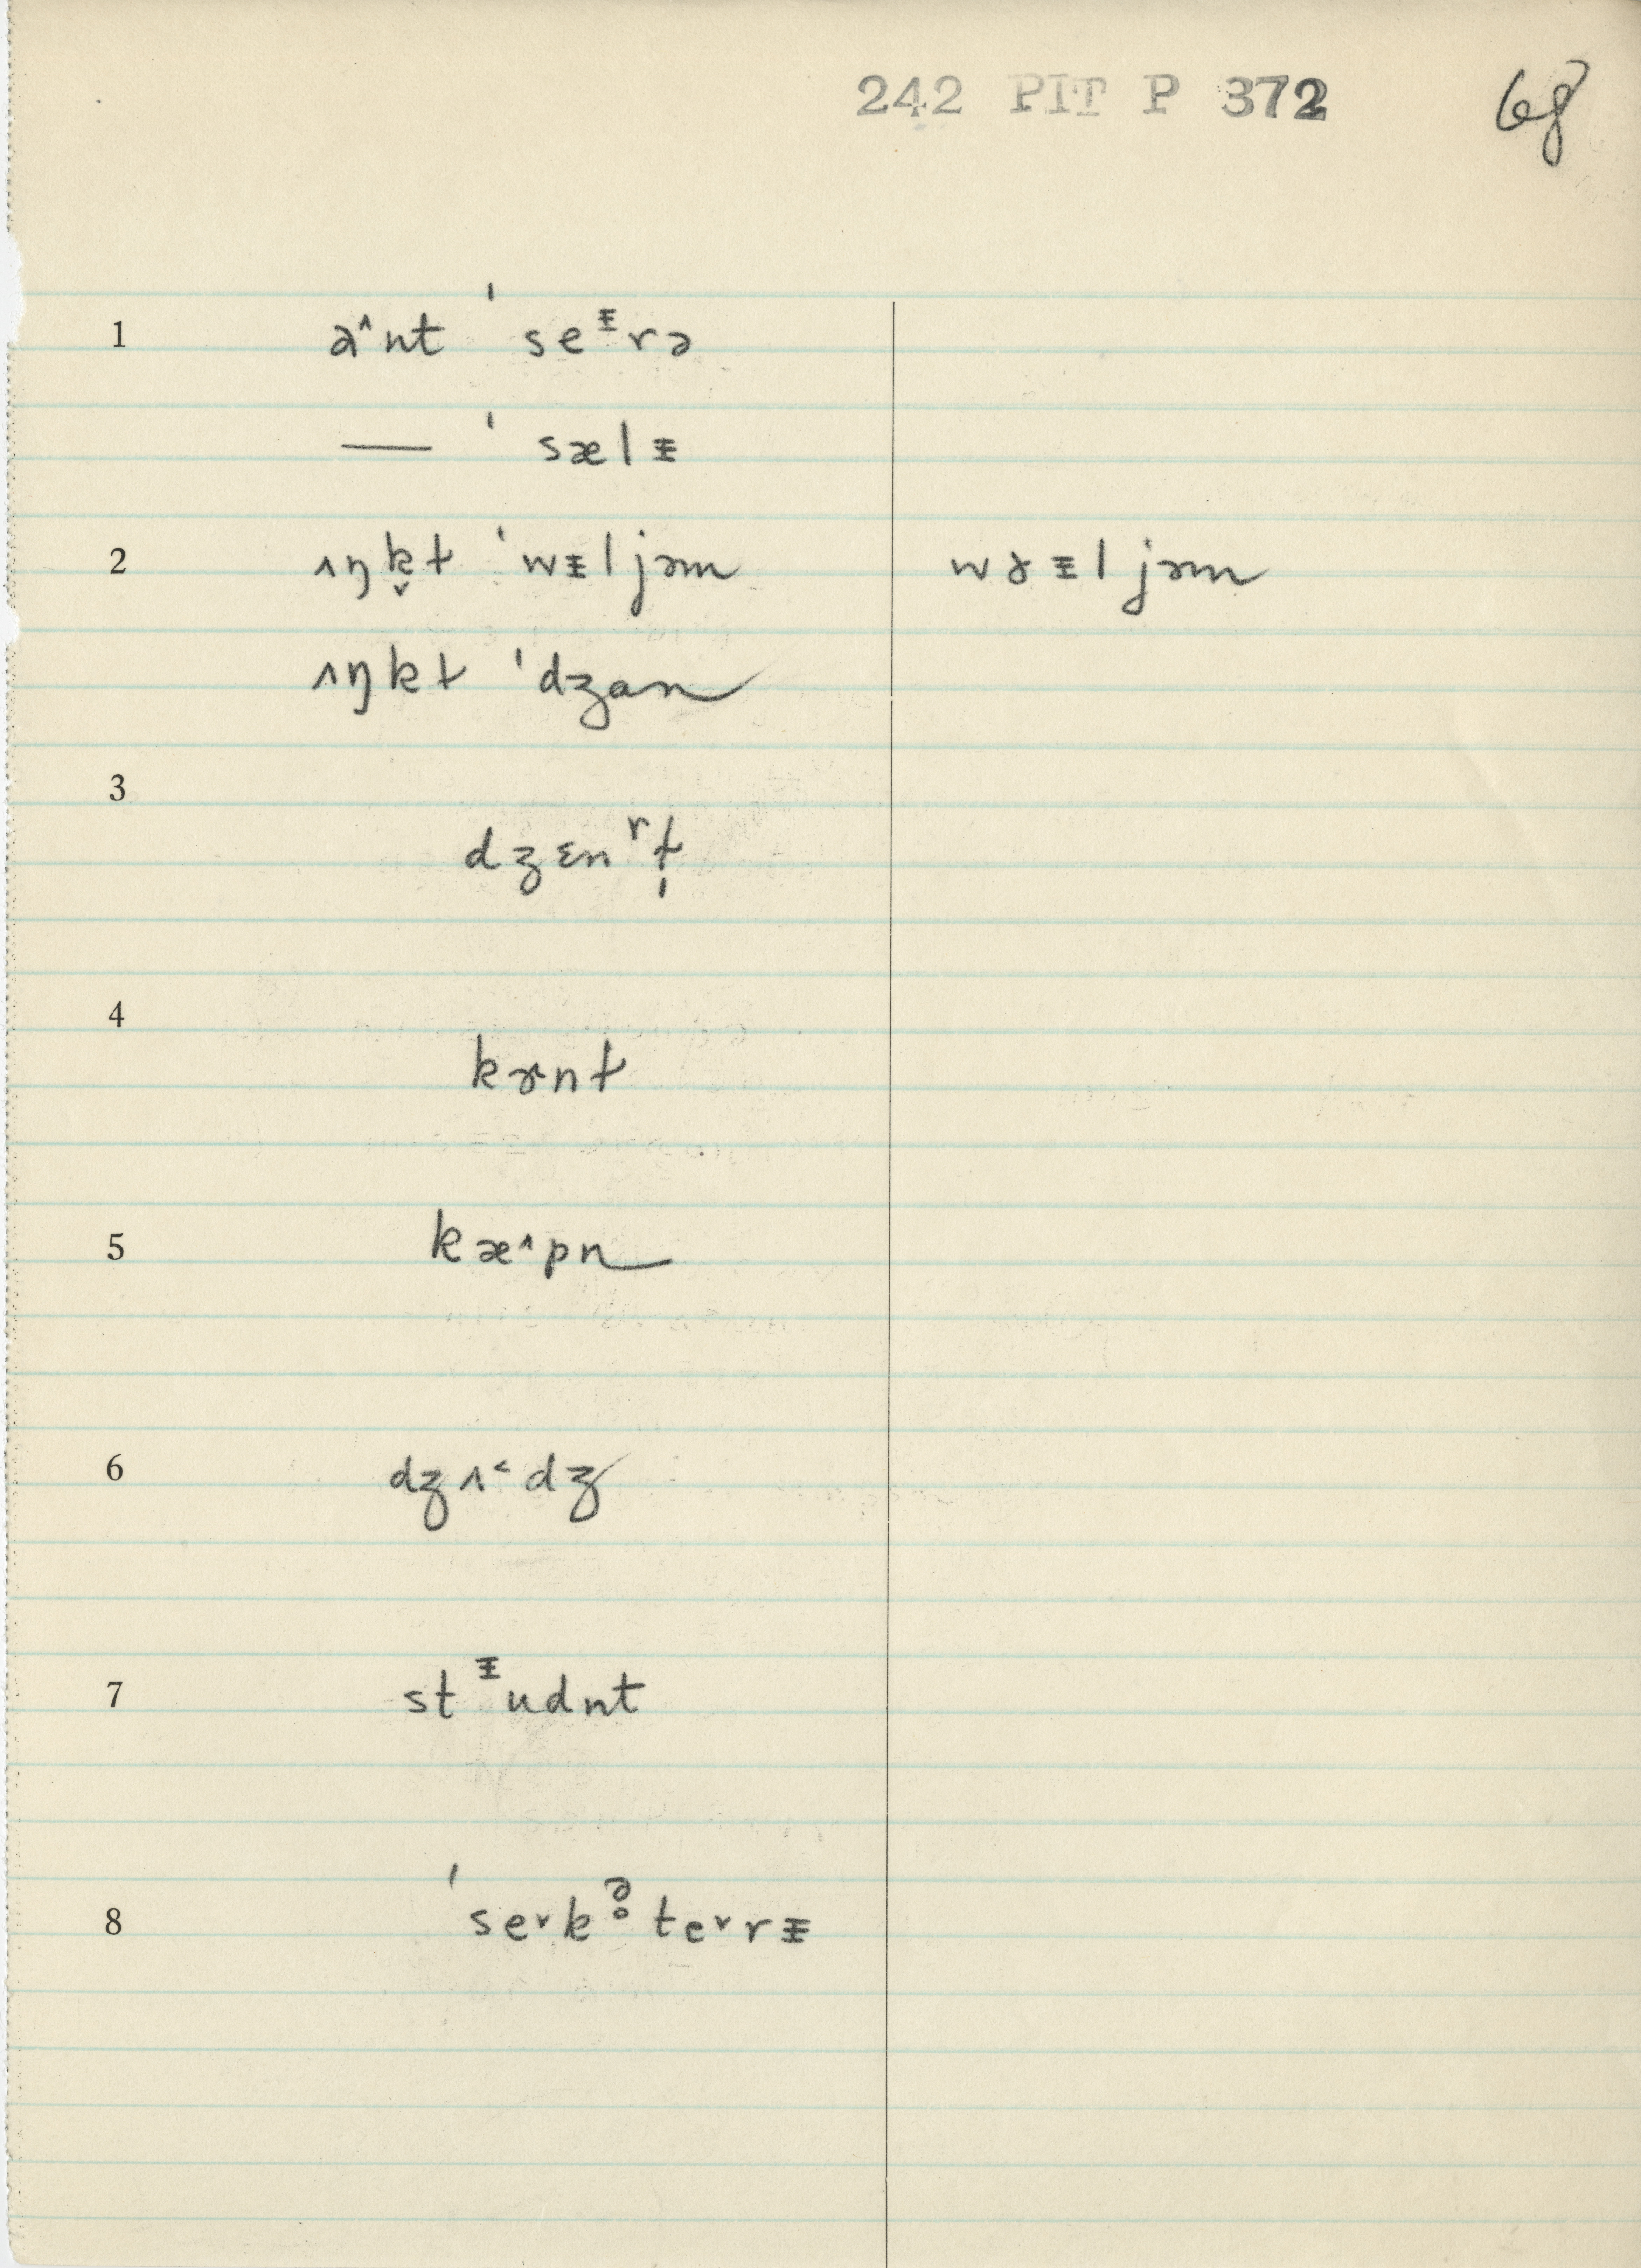 242 PIT P 372
68
1 a˄nt ˈseᵻrə
— ˈsælᵻ
2 ʌŋk̬t ˈwᵻljəm wɤᵻljəm
ʌŋkt ˈdʒɑn
3 dʒɛnʳt̩
4 kɝnt
5 kæ˄pn
6 dʒʌ˂dʒ
7 stᵻudnt
8 ˈse˅kə̥te˅rᵻ